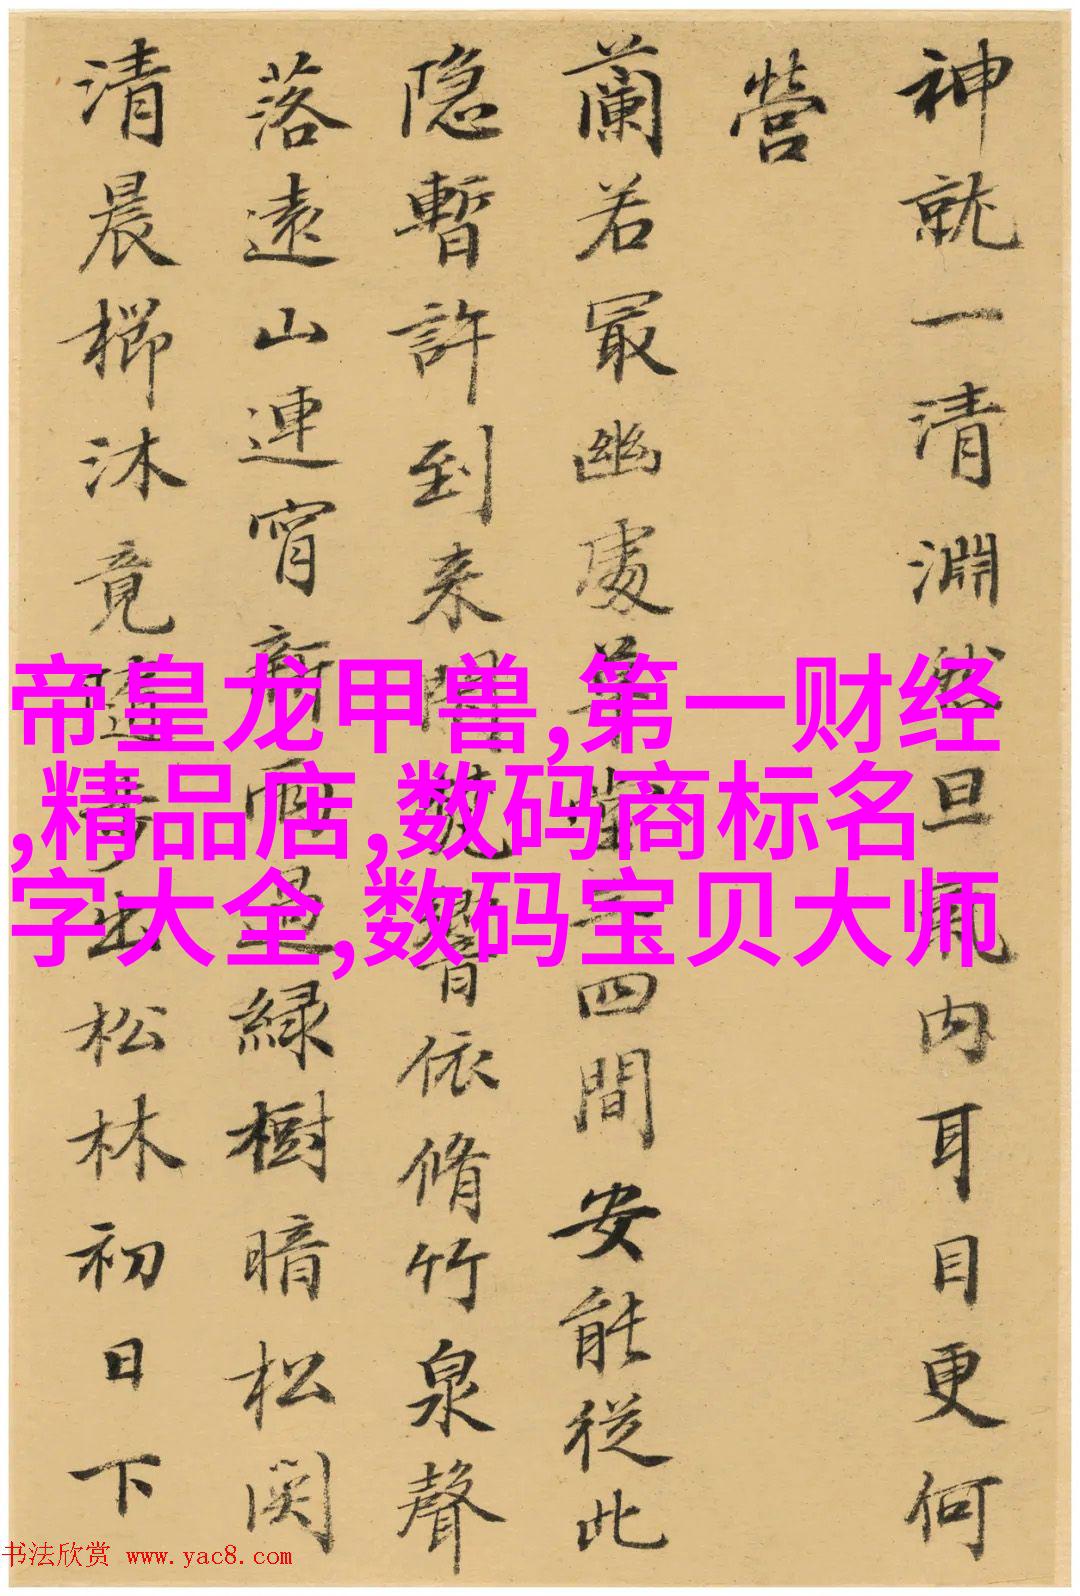 神就一清淵然旦氣内耳目更何
營
蘭若冣幽處草堂三四間安能従此
隐暫許到来閒梵響依脩竹泉聲
落遠山連宵新雨足緑樹暗松関
清晨櫛沐竟隨步出松林初日下
帝皇龙甲兽,第一财经
,精品店,数码商标名
字大全,数码宝贝大师
书法欣赏 www.yac8.com